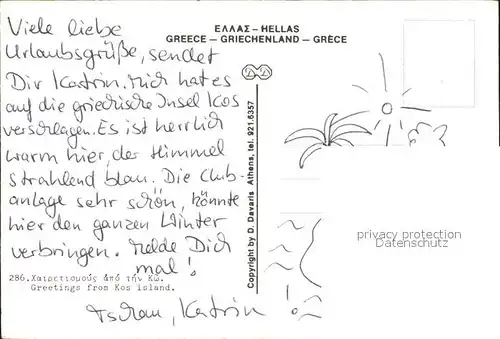 Viele liebe
Urlaubsgrüße, sendet
Dir Katrin. Mich hat es
auf die griechische Insel Kos
verschlagen. Es ist herrlich
warm hier, der Himmel
strahlend blau. Die Club-
anlage sehr schön, könnte
hier den ganzen Winter
verbringen. Melde Dich
mal!
286.Χαιρετισμούς ἀπό τήν Κῶ.
Greetings from Kos island.
Tschau, Katrin
ΕΛΛΑΣ – HELLAS
GREECE – GRIECHENLAND – GRÈCE
Copyright by D. Davaris Athens, tel. 921.6357
privacy protection
Datenschutz